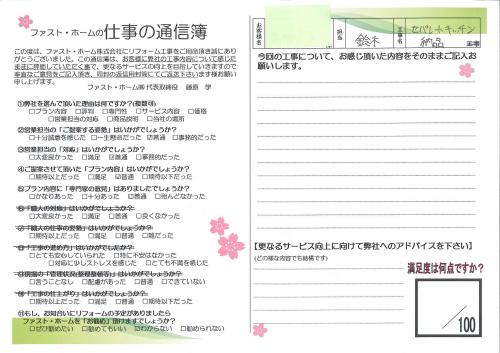 ファスト・ホームの仕事の通信簿
この度は、ファスト・ホーム株式会社にリフォーム工事をご用命頂き誠にあり
がとうございました。この通信簿は、お客様に弊社の工事内容について感じた
ままに評価していただく事で、更なるサービスの向上を目指していきますので
垂直なご意見をご記入頂き、同封の返信用封筒にてご返送下さいます様お願い
申し上げます。
ファスト・ホーム㈱ 代表取締役　藤原　学
①弊社を選んで頂いた理由は何ですか?(複数可)
□プラン内容　□評判　□専門性　□サービス内容　□価格
□営業担当の対応　□商品説明　□会社の場所
②営業担当の「ご提案する姿勢」はいかがでしょうか?
□十分誠意を感じた　□一生懸命だった　☑普通　□事務的だった
③営業担当の「対応」はいかがでしょうか?
□大変良かった　□満足　☑普通　□事務的だった
④ご提案させて頂いた「プラン内容」はいかがでしたか?
□期待以上だった　□満足　☑普通　□期待以下だった
⑤プラン内容に「専門家の意見」はありましたでしょうか?
□かなりあった　□十分あった　☑普通　□殆んどなかった
⑥「職人の対応」はいかがでしょうか?
□大変良かった　□満足　□普通　□良くなかった
⑦「職人の仕事の姿勢」はいかがでしょうか?
□期待以上だった　□満足　□普通　□雑だった
⑧「工事の進め方」はいかがでしたか?
□とても安心していられた　□特に不安はなかった
□対応に少しストレスを感じた　□とても不満を感じた
⑨現場の「管理状況(整理整頓等)」はいかがでしょうか?
□言うことなし　□配慮があった　□普通　□できていない
⑩「工事の仕上がり」はいかがでしょうか?
□期待以上だった　□満足　□普通　□期待以下だった
⑪もし、お知合いにリフォームの予定がありましたら
ファスト・ホームを「お勧め」頂けますでしょうか?
□ぜひ勧めたい　□勧めてもいい　☑わからない　□勧められない
お客様名
担当
鈴木
工事名
セパレートキッチン
納品
工事
今回の工事について、お感じ頂いた内容をそのままご記入お
願いします。
【更なるサービス向上に向けて弊社へのアドバイスを下さい】
(どの様な内容でも結構です)
満足度は何点ですか?
/100